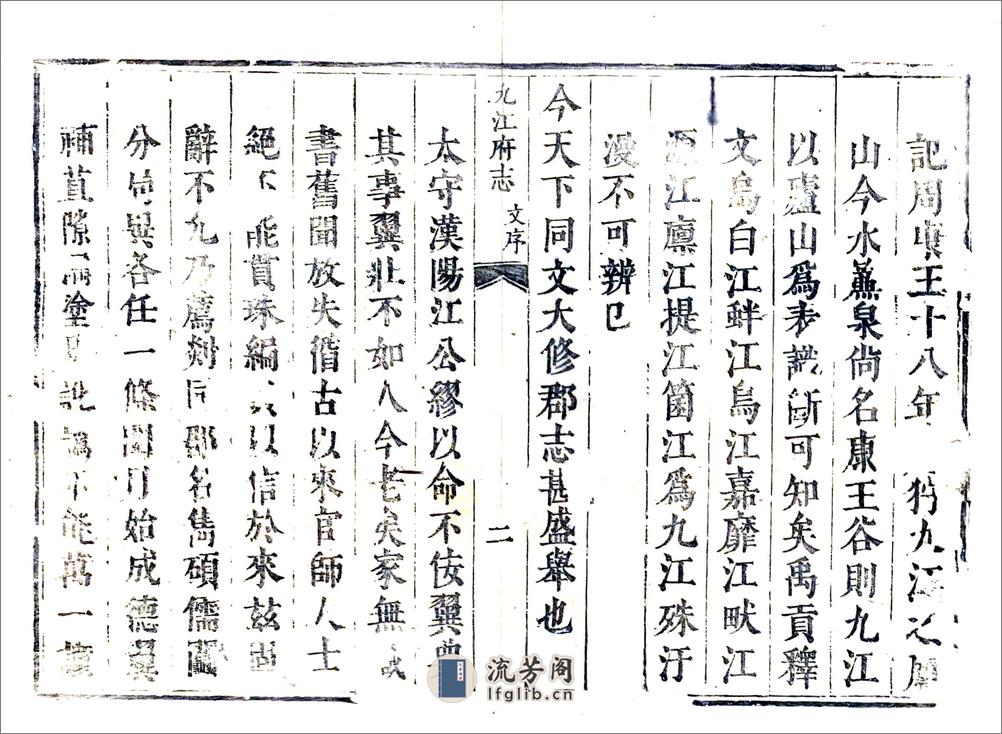 記周康王十八年狩九江之廬
山今水薦泉尙名康王谷則九江
以廬山爲表識斷可知矣禹貢釋
文烏白江蚌江烏江嘉靡江畎江
源江廩江提江箇江爲九江殊汙
漫不可辨已
今天下同文大修郡志甚盛舉也
九江府志
文序
二
太守漢陽江公繆以命不佞翼
其事翼壯不如人今老矣家無
書舊聞放失循古以來官師人士
絕不能貫珠編以信於來茲固
辭不允乃薦剡同郡名雋碩儒
分曹與各任一條閱月始成德翼
補苴隙漏塗不能萬一
流芳阁
lfglib.cn